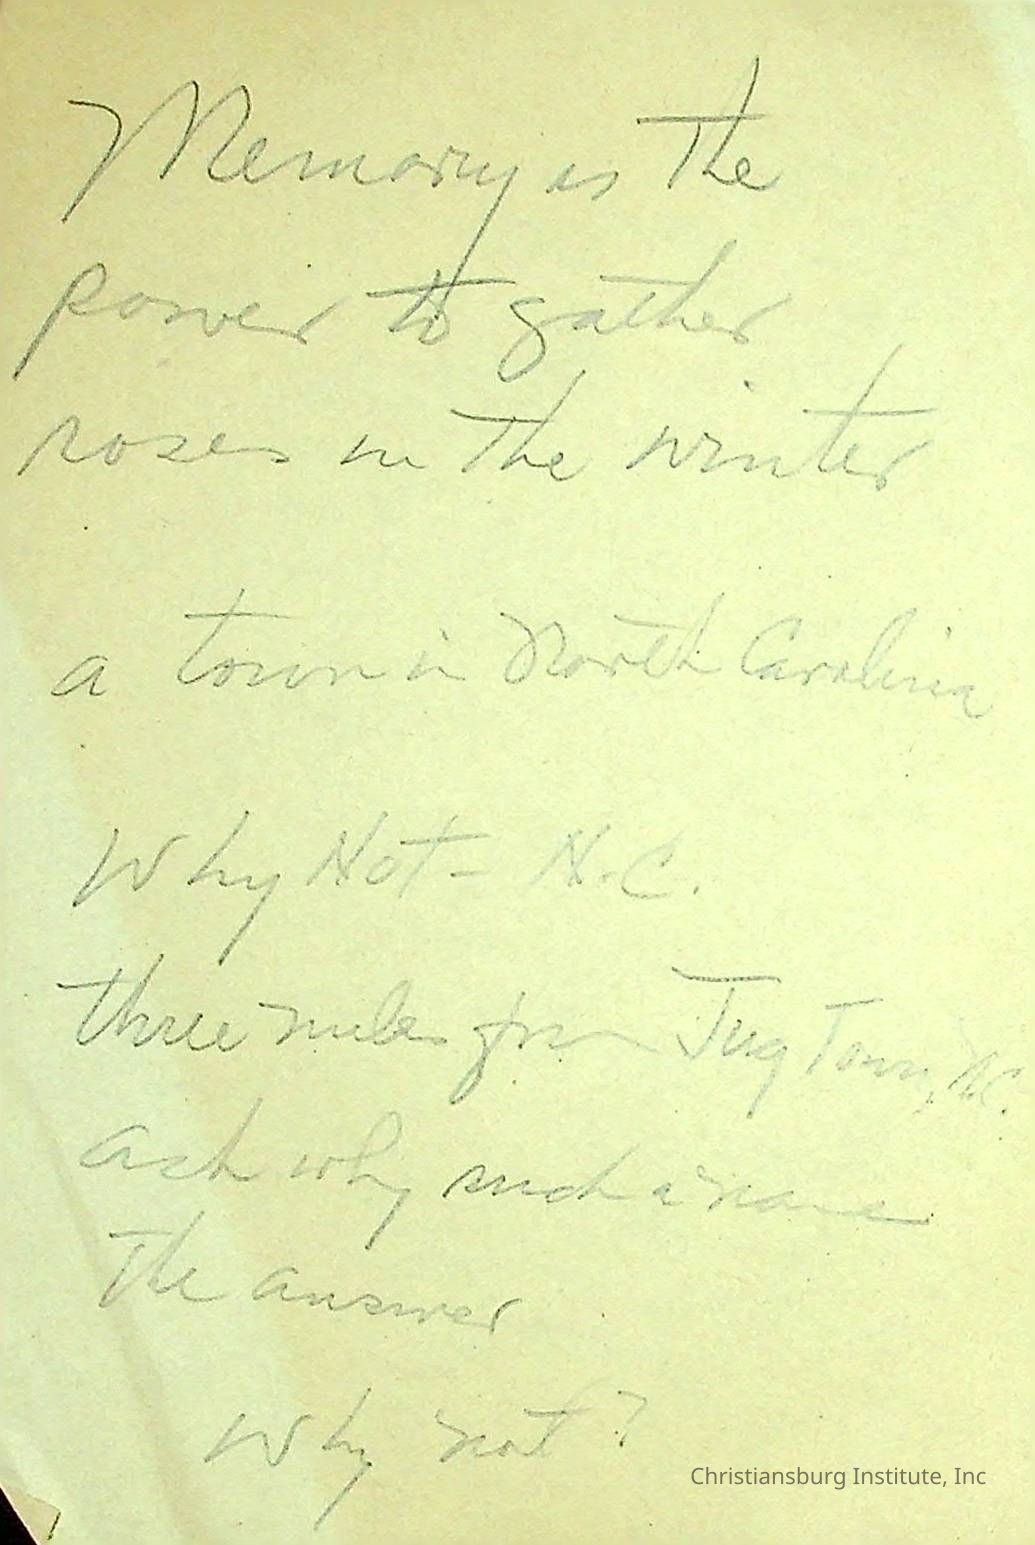 Memory is the
power to gather
roses in the winter
a town in North Carolina
Why Not - N.C.
three miles from Jug Town, N.C.
ask why such a name
The answer
Why not?
Christiansburg Institute, Inc